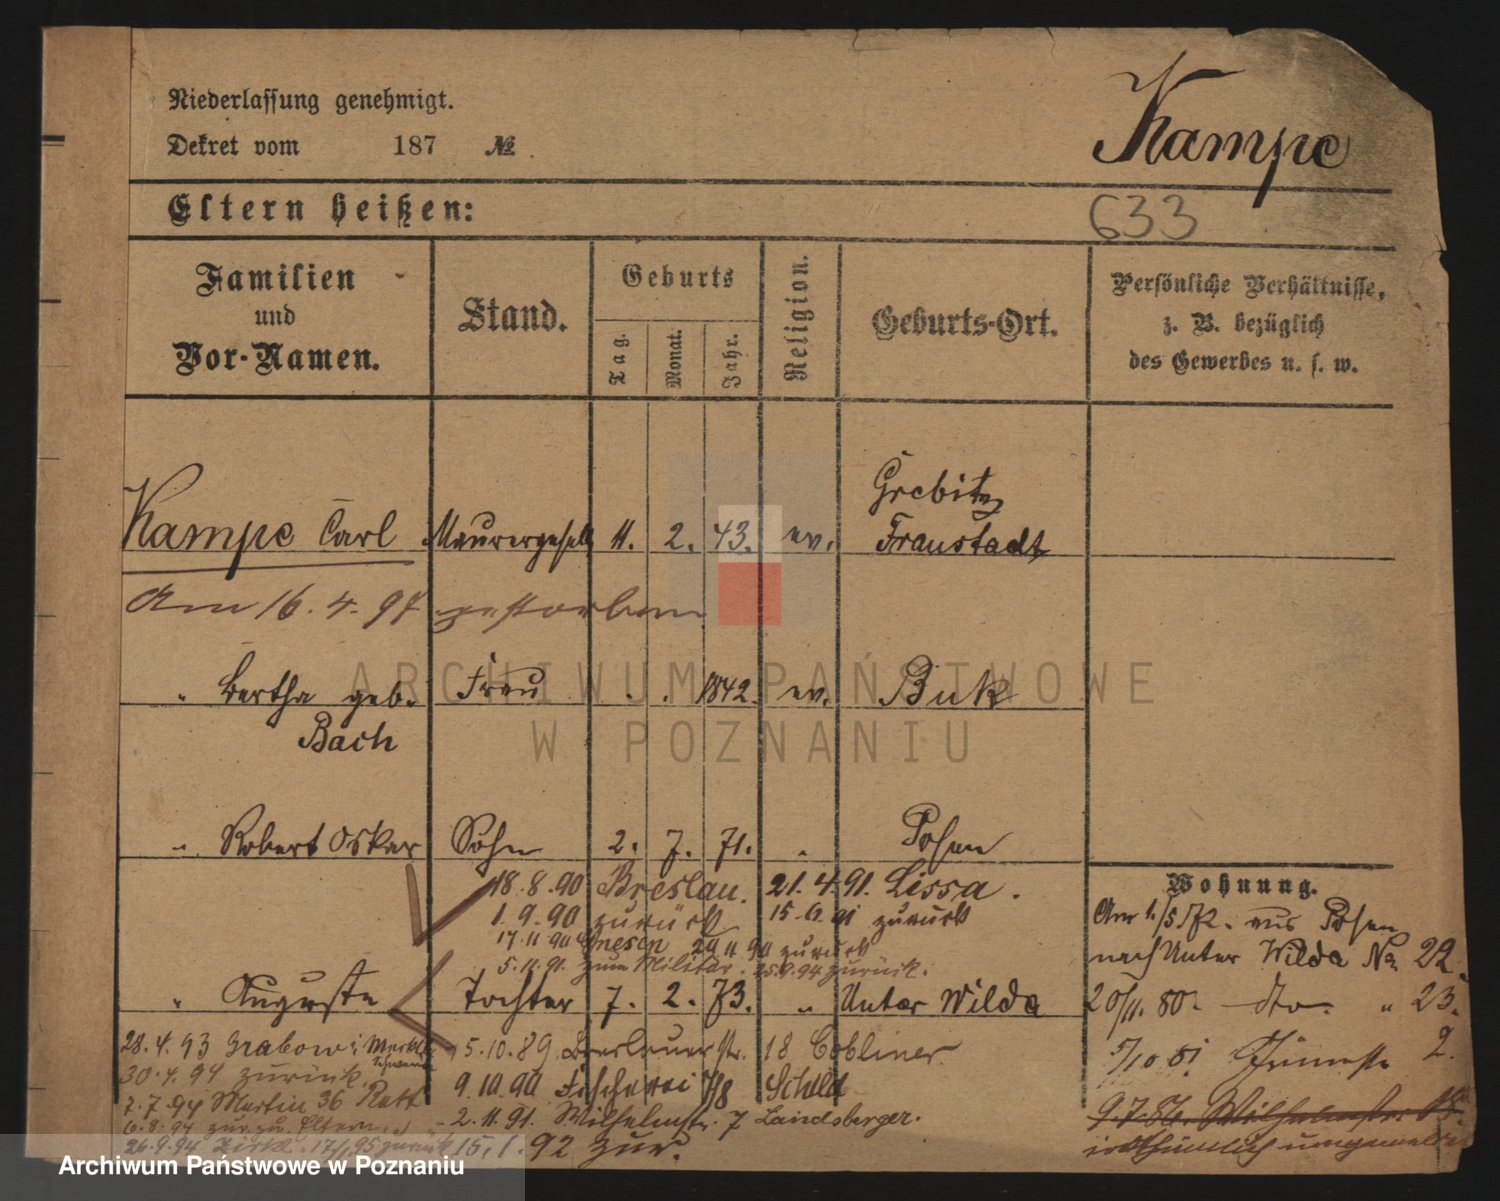 Niederlassung genehmigt.
Dekret vom 187 №
Kampe
Eltern heißen:
633
Familien und Vor-Namen.
Stand.
Geburts
Tag.
Monat.
Jahr.
Religion.
Geburts-Ort.
Persönliche Verhältnisse,
z. B. bezüglich
des Gewerbes u. s. w.
Grebitz
Kampe Carl Maurergesell 11. 2. 43. ev. Fraustadt
Am 16. 4. 97 gestorben
" Bertha geb. Frau . . 1842. ev. Buk
Bach
" Robert Oskar Sohn 2. 7. 71. " Posen
18.8.90 Breslau. 21.4.91. Lissa.
1.9.90 zurück 15.6.91 zurück
17.11.90 Gnesen 29.11.90 zurück
5.11.91. zum Militär. 25.9.94 zurück.
" Auguste Tochter 7. 2. 73. " Unter Wilda
Wohnung.
Am 1./5 72. aus Posen
nach Unter Wilda No. 22.
20/11. 80. dto " 23.
5/10 81 2.
9.7.86. Wilhelmstr.
irrthümlich umgemeldet
28.4.93 Grabow
5.10.89. Breslauerstr. 18 Cobliner
30.4.94 zurück.
9.10.90 Fischerei 7/8 Schild
7.7.94 Martin 36
2.11.91. Wilhelmstr. 7 Landsberger.
6.8.94 zur. zu. Eltern.
26.9.94 17/1.95 zurück
15.1.92 zur.
ARCHIWUM PAŃSTWOWE
W POZNANIU
Archiwum Państwowe w Poznaniu